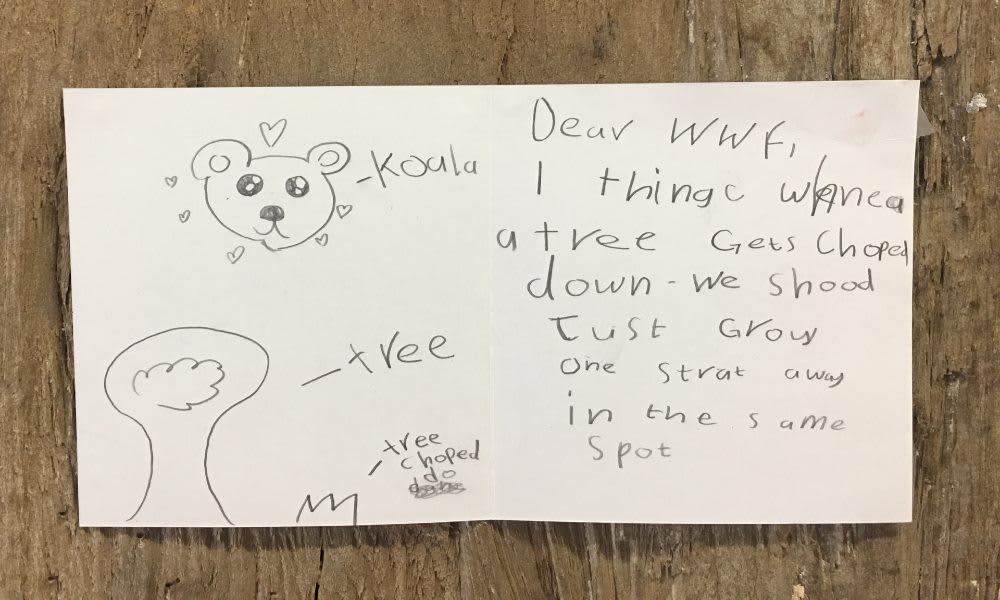 koala
tree
tree
choped
do
Dear WWF,
I thingc whnea
a tree Gets Choped
down - we shood
Just Grow
one strat away
in the same
spot